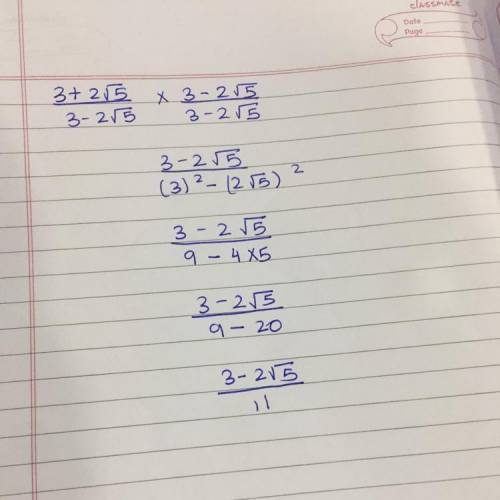 classmate
Date
Page
3+2√5/3-2√5 × 3-2√5/3-2√5
3-2√5/(3)²-(2√5)²
3-2√5/9-4×5
3-2√5/9-20
3-2√5/11